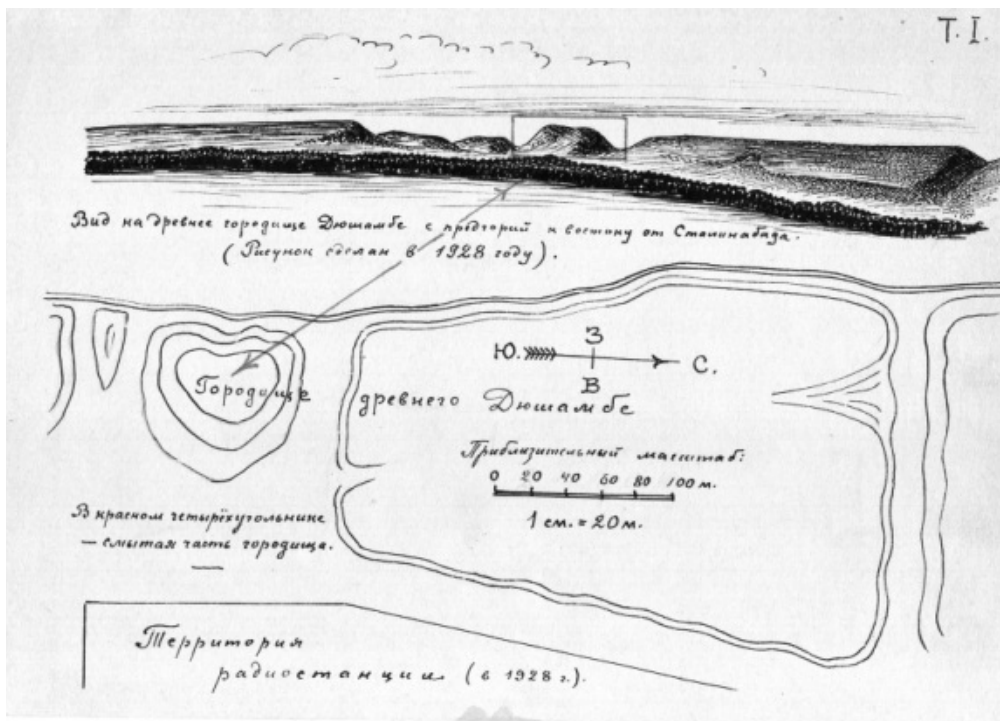 Т. I.
Вид на древнее городище Дюшамбе с предгорий к востоку от Сталинабада.
(Рисунок сделан в 1928 году).
З
Ю. С.
В
Городище древнего Дюшамбе
Приблизительный масштаб:
0 20 40 60 80 100 м.
1 см. = 20 м.
В красном четырёхугольнике
— смытая часть городища.
Территория
радиостанции (в 1928 г.).